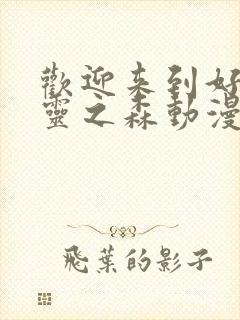 歡迎来到好
靈之森動漫
飛葉的影子